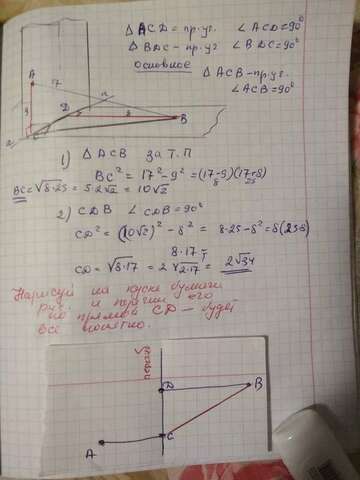 △ ACD = пр.уг. ∠ ACD = 90°
△ BDC - пр.уг ∠ BDC = 90°
основное
△ ACB - пр.уг.
∠ ACB = 90°
A
17
9
D
8
B
C
a
1) △ ACB за Т.П
BC² = 17² - 9² = (17-9)(17+8)
25
BC = √8·25 = 5·2√2 = 10√2
2) CDB ∠ CDB = 90°
CD² = (10√2)² - 8² = 8·25 - 8² = 8(25-8)
8·17
CD = √8·17 = 2√2·17 = 2√34
Нарисуй на куске бумаги
рис. и перегни его
по прямой CD - будет
всё понятно.
перегиб
D
B
A
C